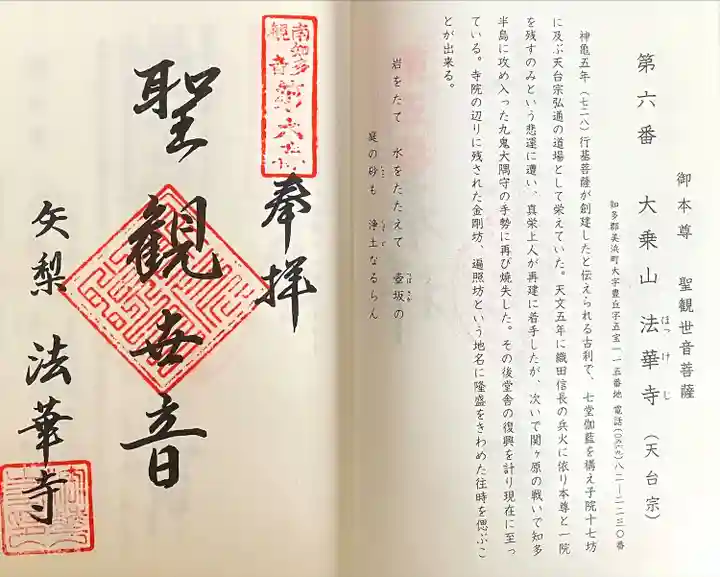 御本尊 聖観世音菩薩
第六番 大乗山 法華寺（天台宗）
ほっけじ
知多郡美浜町大字豊丘字五宝一一五番地 電話(〇五六九)八二―二二三〇番
神亀五年（七二八）行基菩薩が創建したと伝えられる古刹で、七堂伽藍を構え子院十七坊
に及ぶ天台宗弘通の道場として栄えていた。天文五年に織田信長の兵火に依り本尊と一院
を残すのみという悲運に遭い、真栄上人が再建に着手したが、次いで関ヶ原の戦いで知多
半島に攻め入った九鬼大隅守の手勢に再び焼失した。その後堂舎の復興を計り現在に至っ
ている。寺院の辺りに残された金剛坊、遍照坊という地名に隆盛をきわめた往時を偲ぶこ
とが出来る。
岩をたて 水をたたえて 壺坂の
つぼさか
庭の砂も 浄土なるらん
南知多
観音
第六番
奉拝
聖観世音
矢梨 法華寺